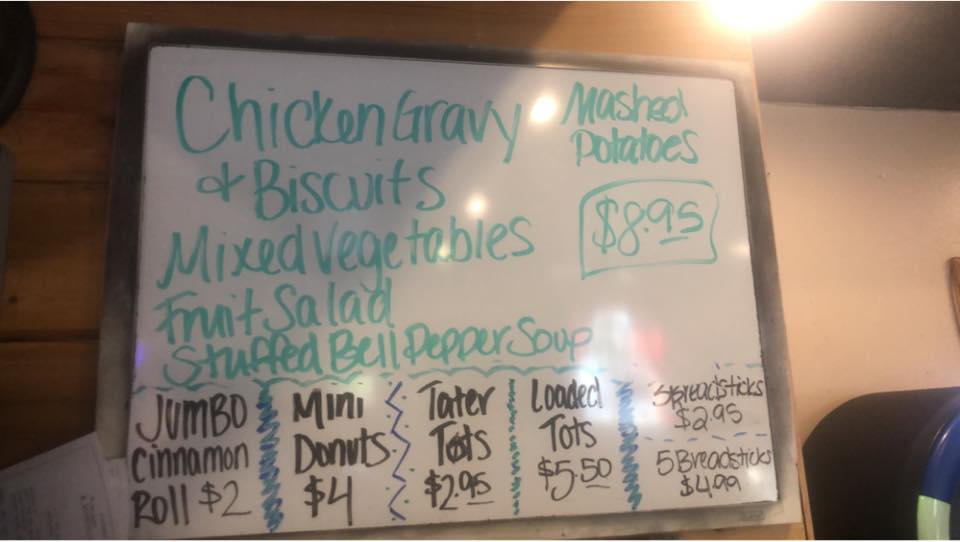 Chicken Gravy
& Biscuits
Mixed Vegetables
Fruit Salad
Stuffed Bell Pepper Soup
Mashed
Potatoes
$8.95
JUMBO
Cinnamon
Roll $2
Mini
Donuts
$4
Tater
Tots
$2.95
Loaded
Tots
$5.50
3 Breadsticks
$2.95
5 Breadsticks
$4.99